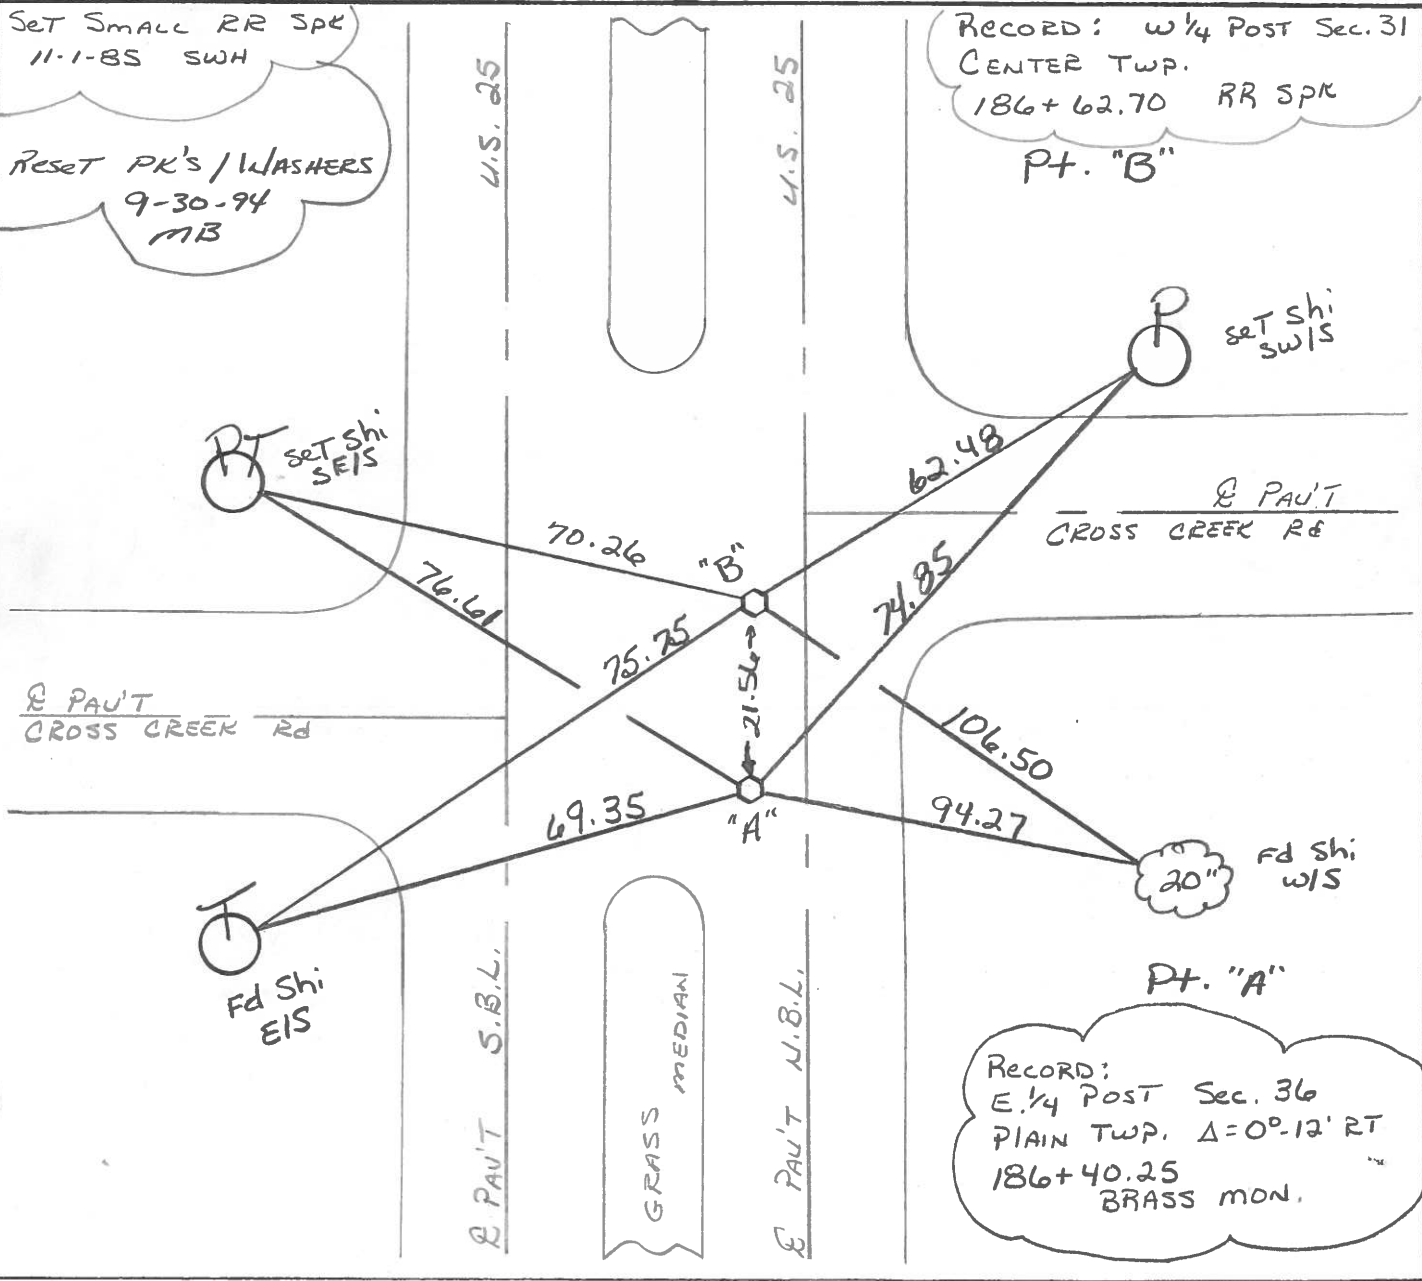 SET SMALL RR SPK
11-1-85 SWH
RESET PK'S / WASHERS
9-30-94
MB
U.S. 25
U.S. 25
RECORD: W 1/4 POST SEC. 31
CENTER TWP.
186+62.70 RR SPK
Pt. "B"
P
SET Shi
SW/S
PT
SET Shi
SE/S
62.48
℄ PAV'T
CROSS CREEK Rd
70.26
"B"
76.61
74.85
75.75
21.56
℄ PAV'T
CROSS CREEK Rd
106.50
69.35
"A"
94.27
20"
Fd Shi
W/S
T
Fd Shi
E/S
Pt. "A"
℄ PAV'T S.B.L.
GRASS MEDIAN
℄ PAV'T N.B.L.
RECORD:
E. 1/4 POST SEC. 36
PLAIN TWP. Δ=0°-12' RT
186+40.25
BRASS MON.